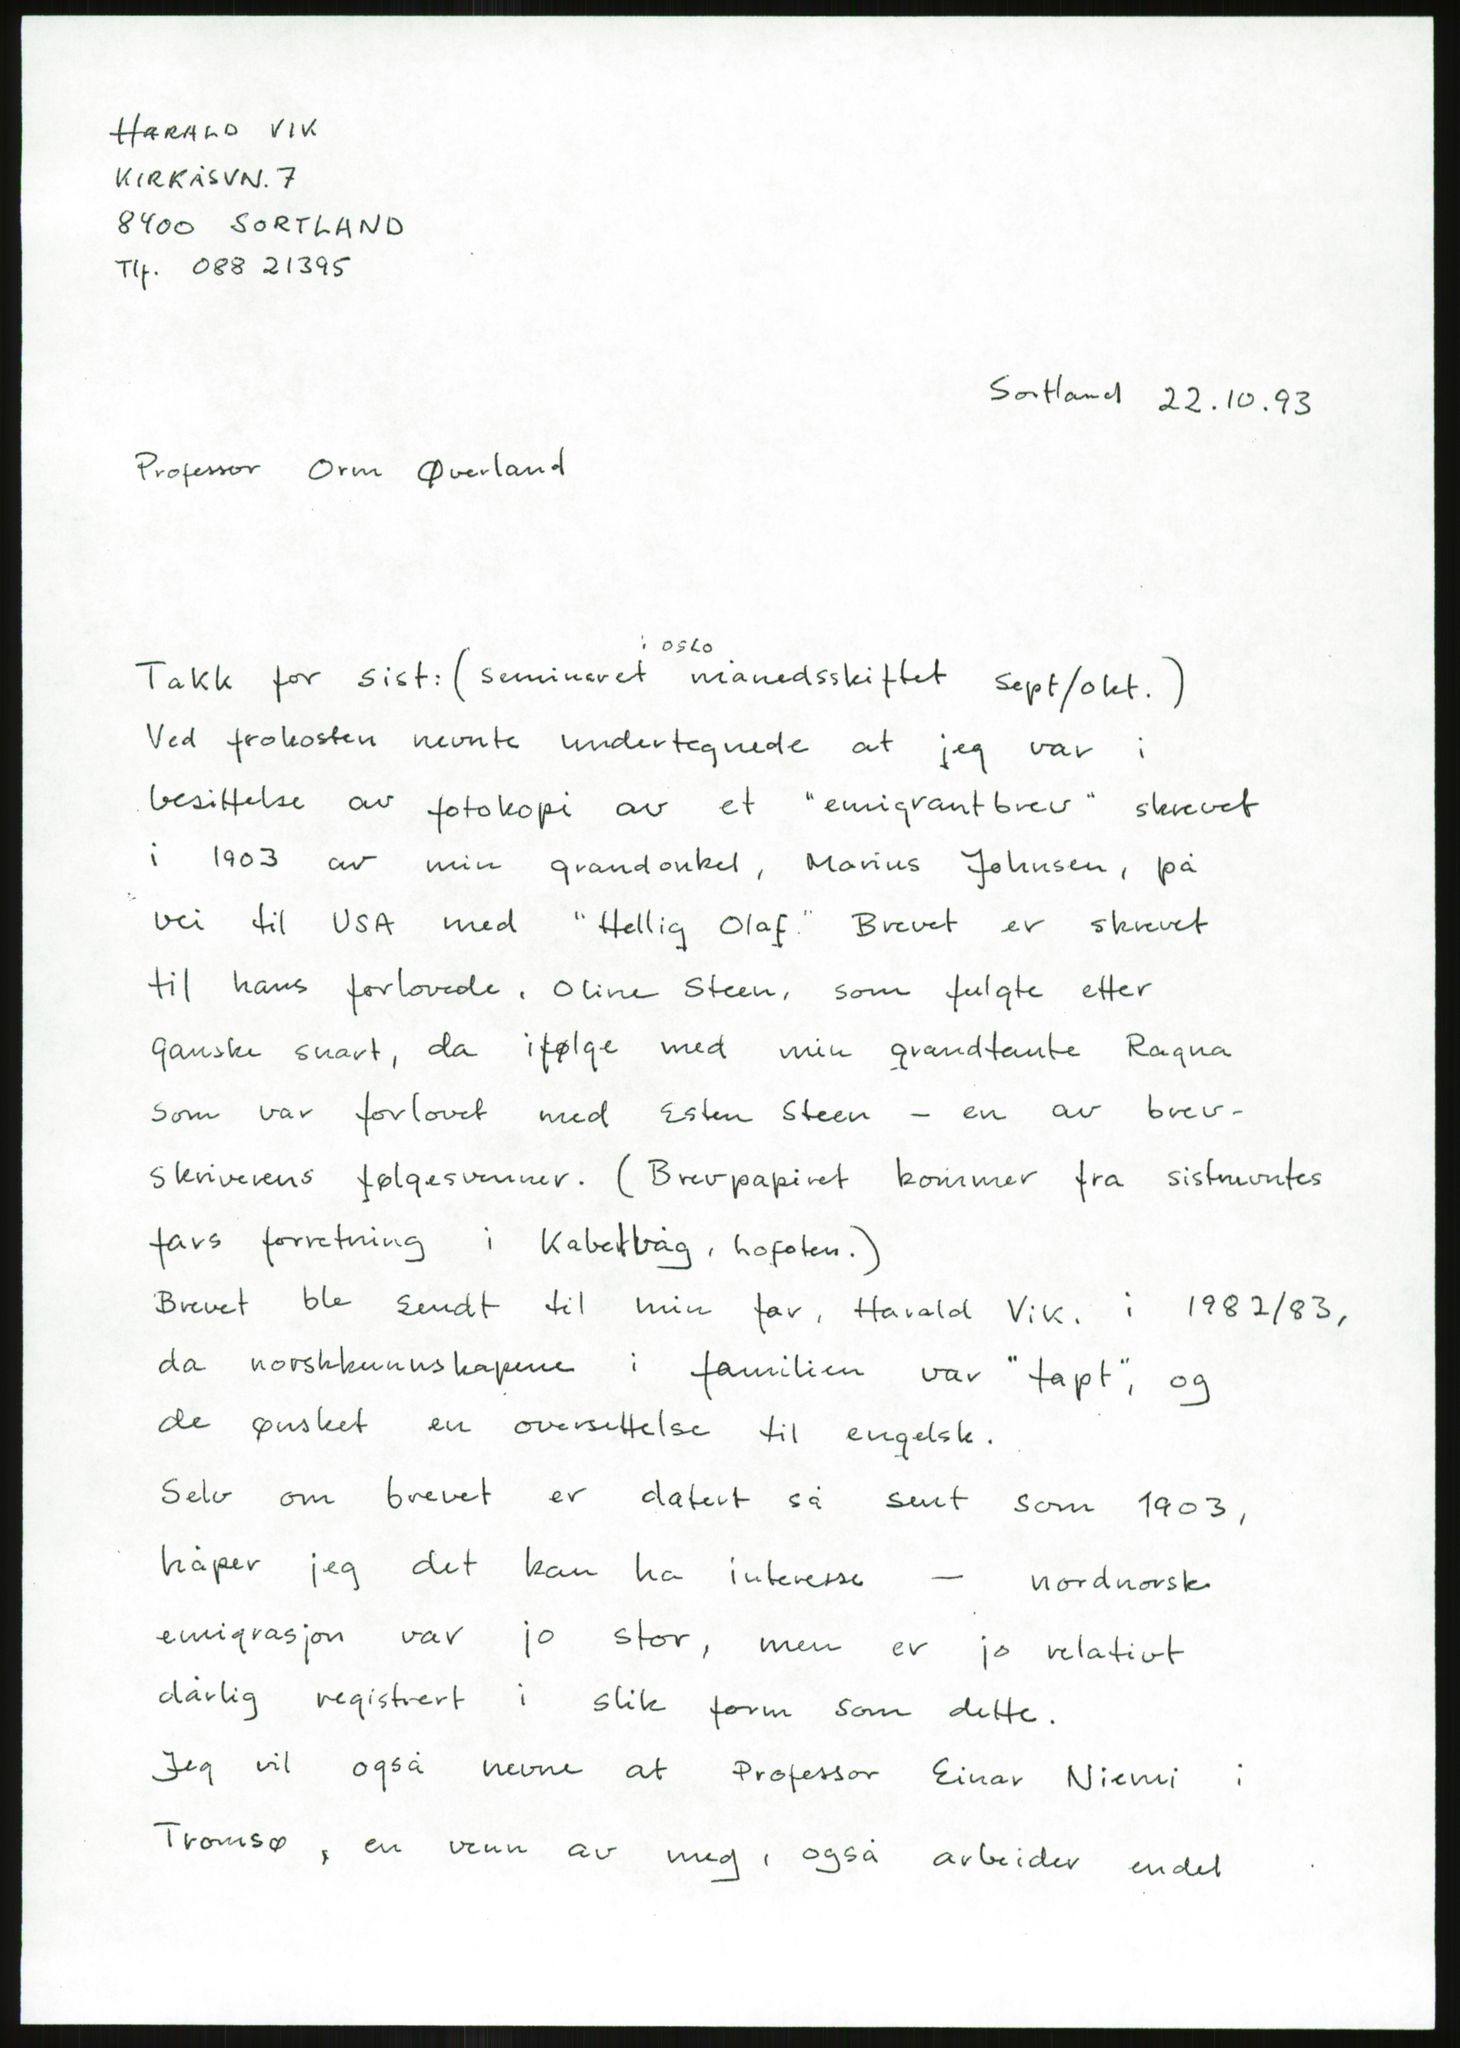 HARALD VIK
KIRKÅSVN. 7
8400 SORTLAND
Tlf. 088 21395
Sortland 22.10.93
Professor Orm Øverland
i OSLO
Takk for sist: (seminaret månedsskiftet sept/okt.)
Ved frokosten nevnte undertegnede at jeg var i
besittelse av fotokopi av et "emigrantbrev" skrevet
i 1903 av min grandonkel, Marius Johnsen, på
vei til USA med "Hellig Olaf." Brevet er skrevet
til hans forlovede, Oline Steen, som fulgte etter
ganske snart, da ifølge med min grandtante Ragna
som var forlovet med Esten Steen – en av brev-
skriverens følgesvenner. (Brevpapiret kommer fra sistnevntes
fars forretning i Kabelvåg, Lofoten.)
Brevet ble sendt til min far, Harald Vik, i 1982/83,
da norskkunnskapene i familien var "tapt", og
de ønsket en oversettelse til engelsk.
Selv om brevet er datert så sent som 1903,
håper jeg det kan ha interesse – nordnorsk
emigrasjon var jo stor, men er jo relativt
dårlig registrert i slik form som dette.
Jeg vil også nevne at Professor Einar Niemi i
Tromsø, en venn av meg, også arbeider endel